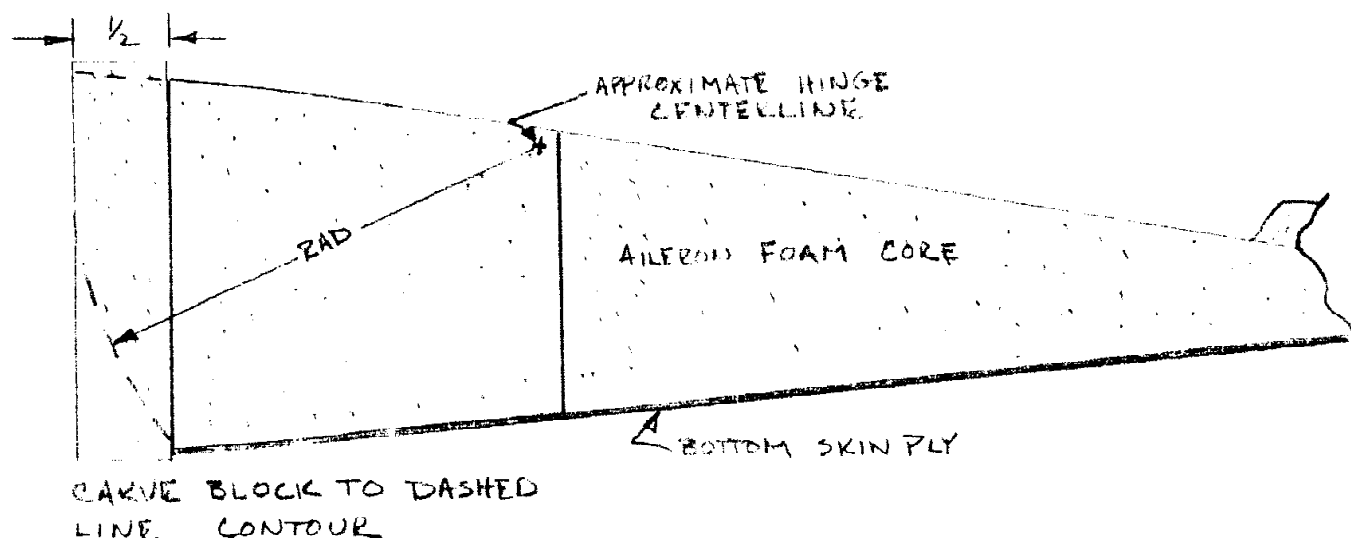 ½
APPROXIMATE HINGE
CENTERLINE
RAD
AILERON FOAM CORE
BOTTOM SKIN PLY
CARVE BLOCK TO DASHED
LINE CONTOUR